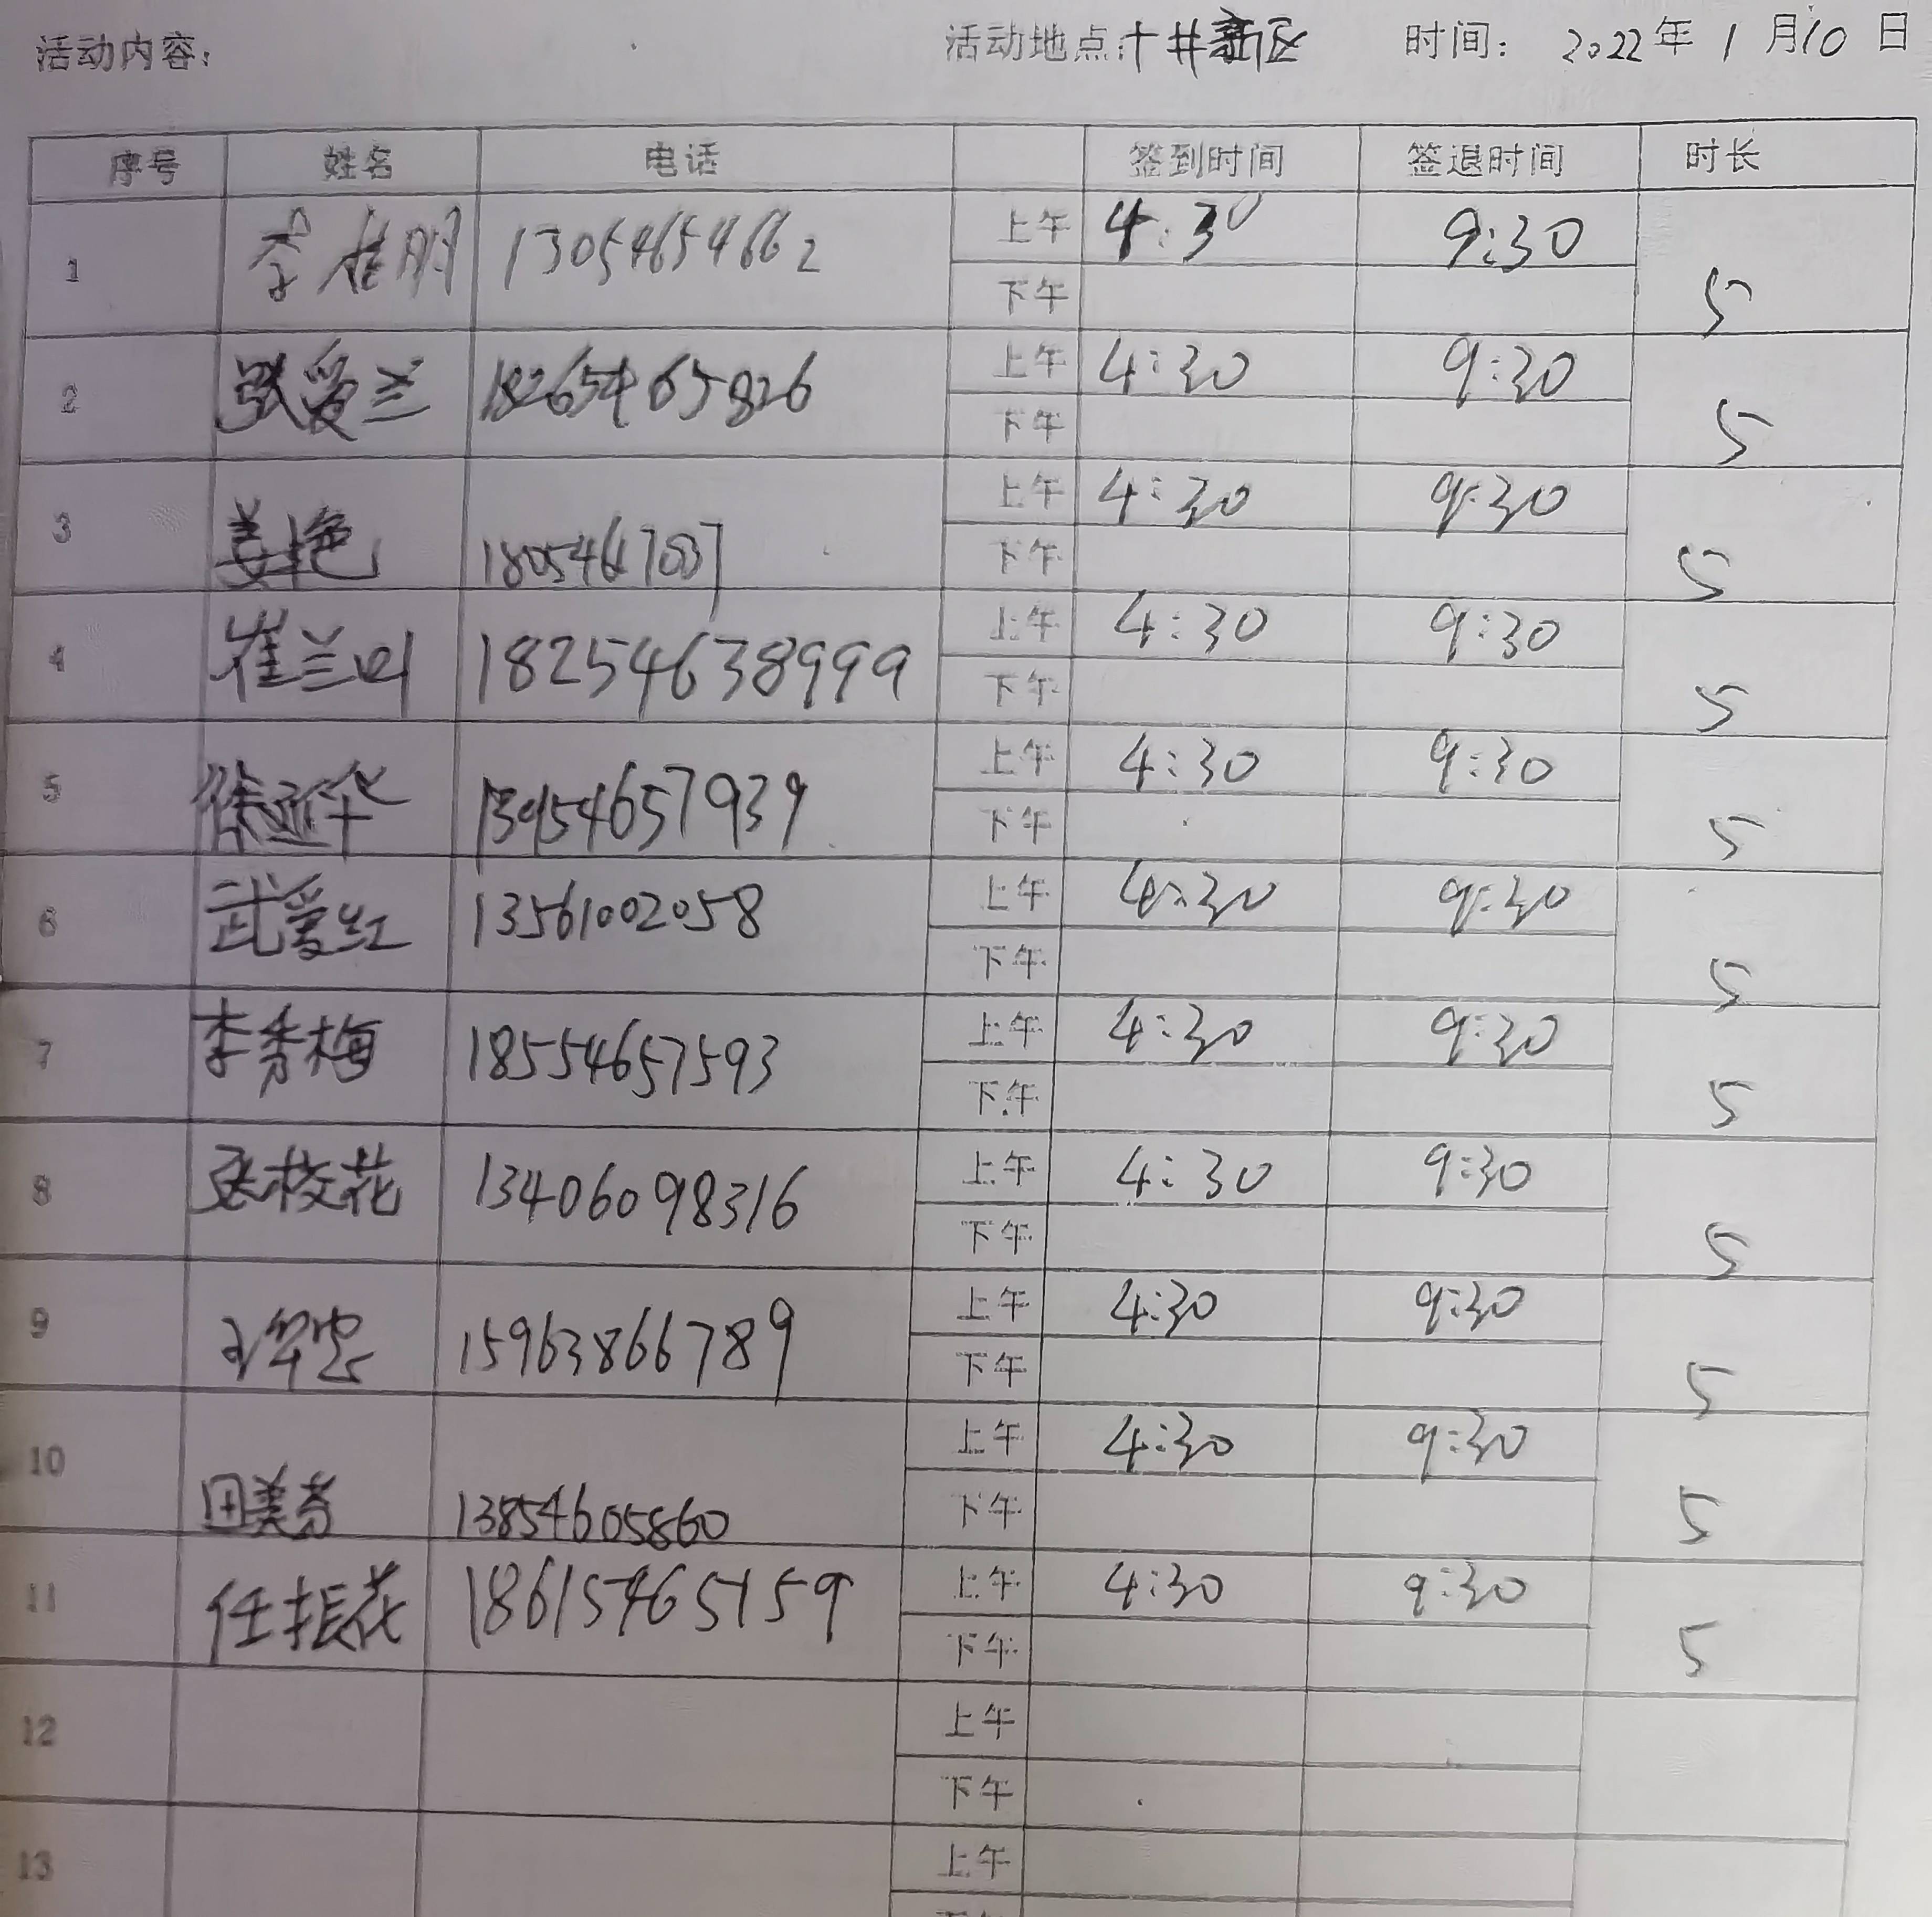 活动内容:
活动地点:十井 时间: 2022年1月10日
序号 姓名 电话 签到时间 签退时间 时长
1 李桂明 13054654662 上午 4:30 9:30 5
下午
2 张爱兰 18265465826 上午 4:30 9:30 5
下午
3 姜艳 上午 4:30 9:30 5
下午
4 崔兰叶 18254638999 上午 4:30 9:30 5
下午
5 徐延华 13954657939 上午 4:30 9:30 5
下午
6 武爱红 13561002058 上午 4:30 9:30 5
下午
7 李秀梅 18554657593 上午 4:30 9:30 5
下午
8 张枝花 13406098316 上午 4:30 9:30 5
下午
9 15963866789 上午 4:30 9:30 5
下午
10 田美芳 13854605860 上午 4:30 9:30 5
下午
11 任振花 18615465159 上午 4:30 9:30 5
下午
12 上午
下午
13 上午
下午